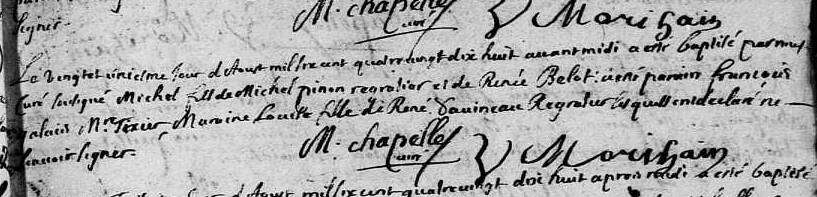 signer. M. chapelle Morisain
curé
Le vingt et uniesme jour d Aoust mil six cent quatre vingt dix huit avant midi a esté baptisé par moy
curé sousigné Michel fils de Michel pinon regratier et de Renée Belot: a esté parain francois
Mre Texier, Maraine Louise fille de René Sauineau Regratier lesquels ont declaré ne
scauoir signer. M. chapelle Morisain
curé
jour d Aoust mil six cent quatre vingt dix huit apres midi a esté baptisé